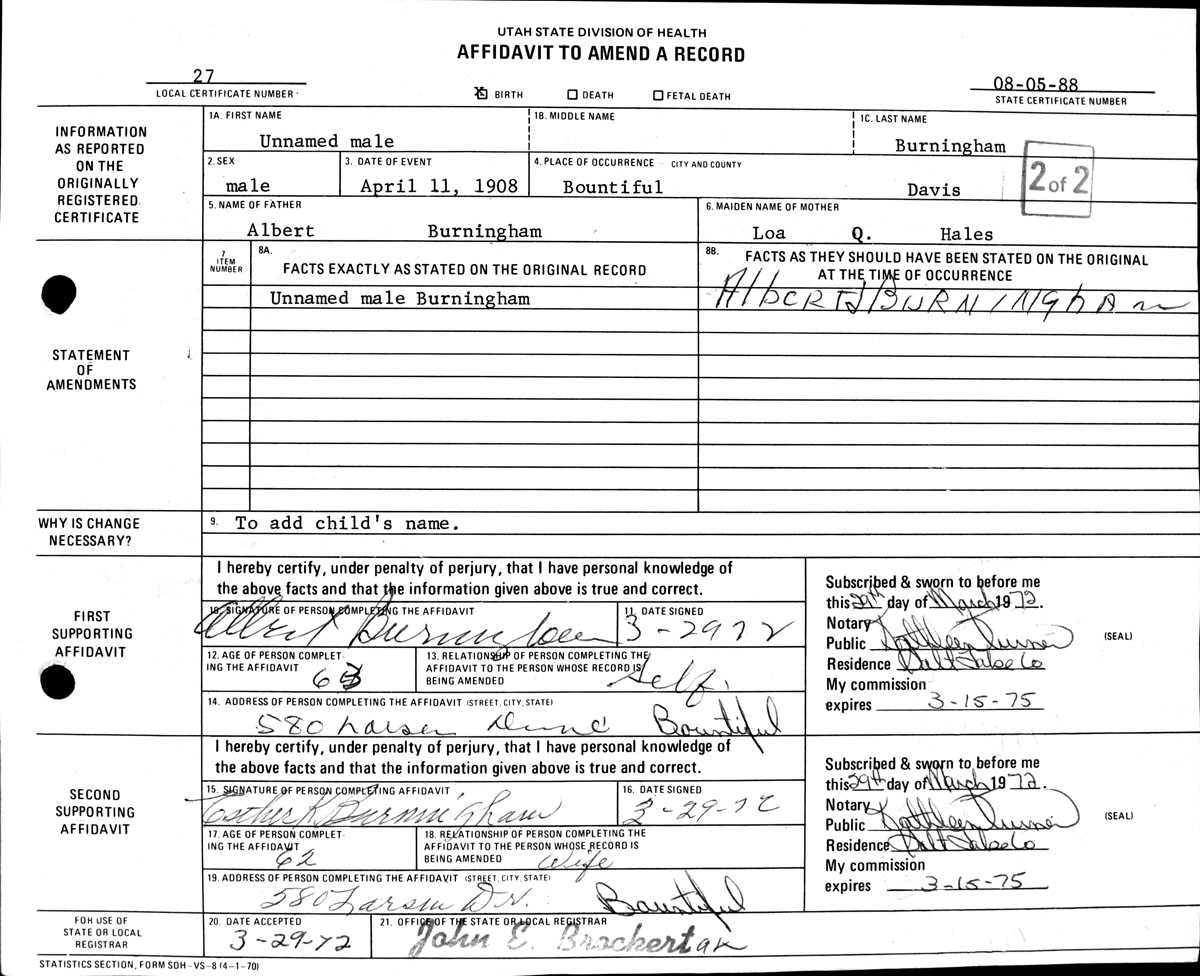 UTAH STATE DIVISION OF HEALTH
AFFIDAVIT TO AMEND A RECORD
27
LOCAL CERTIFICATE NUMBER
BIRTH DEATH FETAL DEATH
08-05-88
STATE CERTIFICATE NUMBER
INFORMATION AS REPORTED ON THE ORIGINALLY REGISTERED CERTIFICATE
1A. FIRST NAME 1B. MIDDLE NAME 1C. LAST NAME
Unnamed male Burningham
2. SEX 3. DATE OF EVENT 4. PLACE OF OCCURRENCE CITY AND COUNTY
male April 11, 1908 Bountiful Davis
2 of 2
5. NAME OF FATHER 6. MAIDEN NAME OF MOTHER
Albert Burningham Loa Q. Hales
STATEMENT OF AMENDMENTS
7 ITEM NUMBER
8A. FACTS EXACTLY AS STATED ON THE ORIGINAL RECORD
8B. FACTS AS THEY SHOULD HAVE BEEN STATED ON THE ORIGINAL
AT THE TIME OF OCCURRENCE
Unnamed male Burningham Albert BURNINGhAm
WHY IS CHANGE NECESSARY?
9. To add child's name.
FIRST SUPPORTING AFFIDAVIT
I hereby certify, under penalty of perjury, that I have personal knowledge of
the above facts and that the information given above is true and correct.
10. SIGNATURE OF PERSON COMPLETING THE AFFIDAVIT 11. DATE SIGNED
Albert Burningham 3-29 72
12. AGE OF PERSON COMPLETING THE AFFIDAVIT
63
13. RELATIONSHIP OF PERSON COMPLETING THE
AFFIDAVIT TO THE PERSON WHOSE RECORD IS
BEING AMENDED Self.
14. ADDRESS OF PERSON COMPLETING THE AFFIDAVIT (STREET, CITY, STATE)
580 Larsen Drive Bountiful
Subscribed & sworn to before me
this 29th day of March 1972.
Notary
Public Kathleen
Residence Salt Lake Co
My commission
expires 3-15-75
(SEAL)
SECOND SUPPORTING AFFIDAVIT
I hereby certify, under penalty of perjury, that I have personal knowledge of
the above facts and that the information given above is true and correct.
15. SIGNATURE OF PERSON COMPLETING AFFIDAVIT 16. DATE SIGNED
Esther K Burningham 3-29-72
17. AGE OF PERSON COMPLETING THE AFFIDAVIT
62
18. RELATIONSHIP OF PERSON COMPLETING THE
AFFIDAVIT TO THE PERSON WHOSE RECORD IS
BEING AMENDED Wife
19. ADDRESS OF PERSON COMPLETING THE AFFIDAVIT (STREET, CITY, STATE)
580 Larsen Dr. Bountiful
Subscribed & sworn to before me
this 29th day of March 1972.
Notary
Public Kathleen
Residence Salt Lake Co
My commission
expires 3-15-75
(SEAL)
FOR USE OF STATE OR LOCAL REGISTRAR
20. DATE ACCEPTED 21. OFFICE OF THE STATE OR LOCAL REGISTRAR
3-29-72 John E. Brockert
STATISTICS SECTION, FORM SDH-VS-8 (4-1-70)